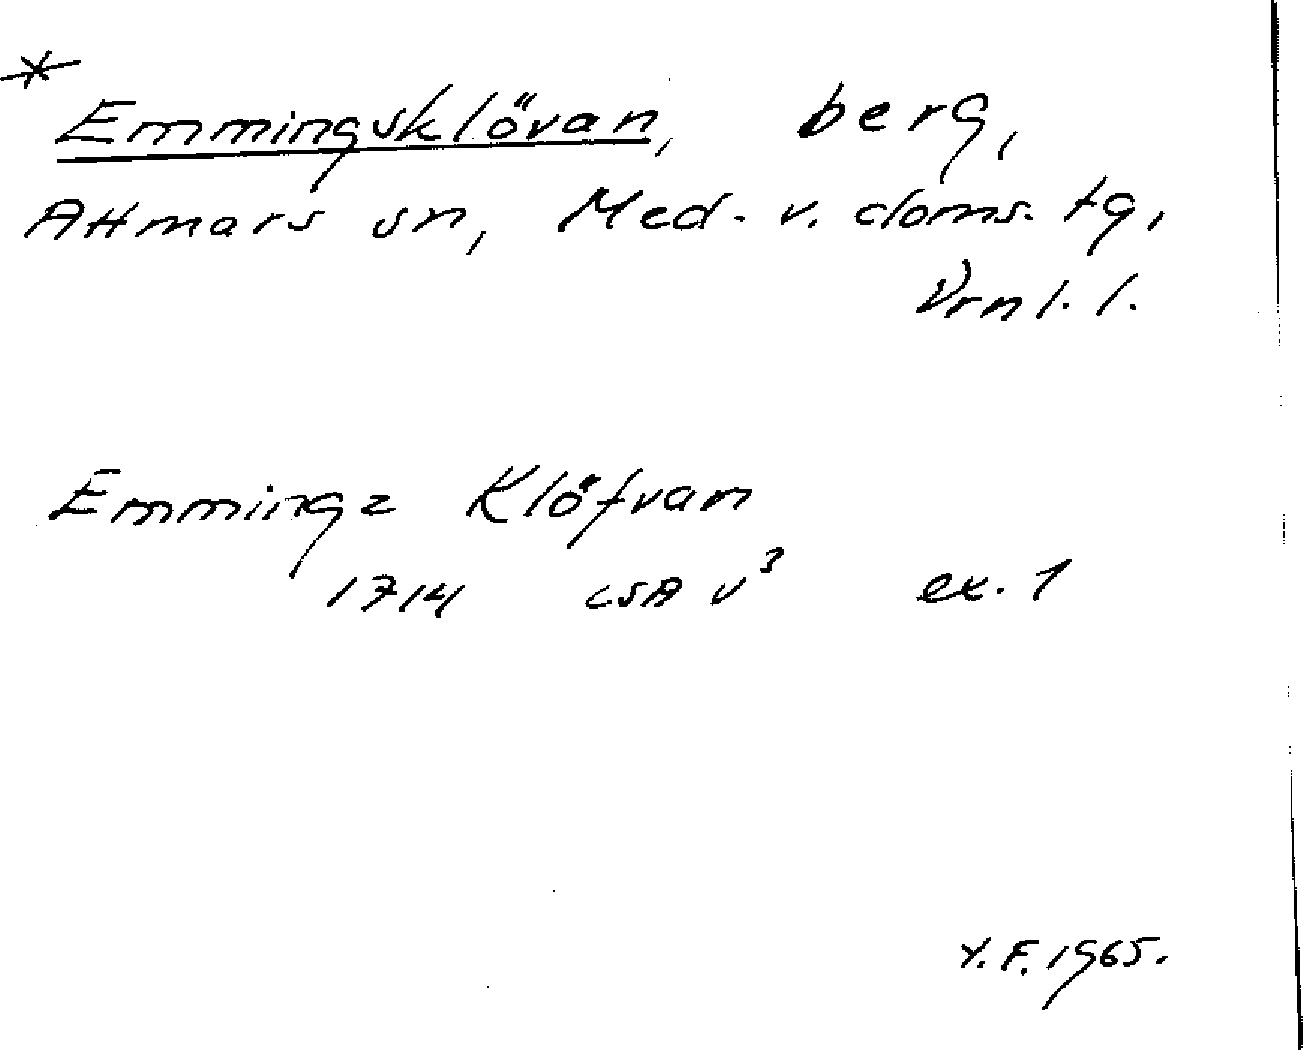 *
Emmingsklövan, berg,
Attmars sn, Med. v. doms. tg,
Vrnl. l.
Emmingz Klöfvan
1714 LSA V³ ex. 1
Y. F. 1965.